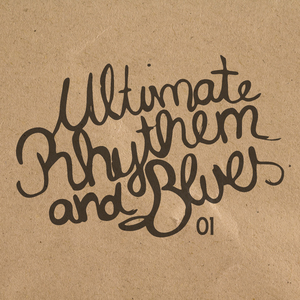 Ultimate
Rhythem
and Blues
01